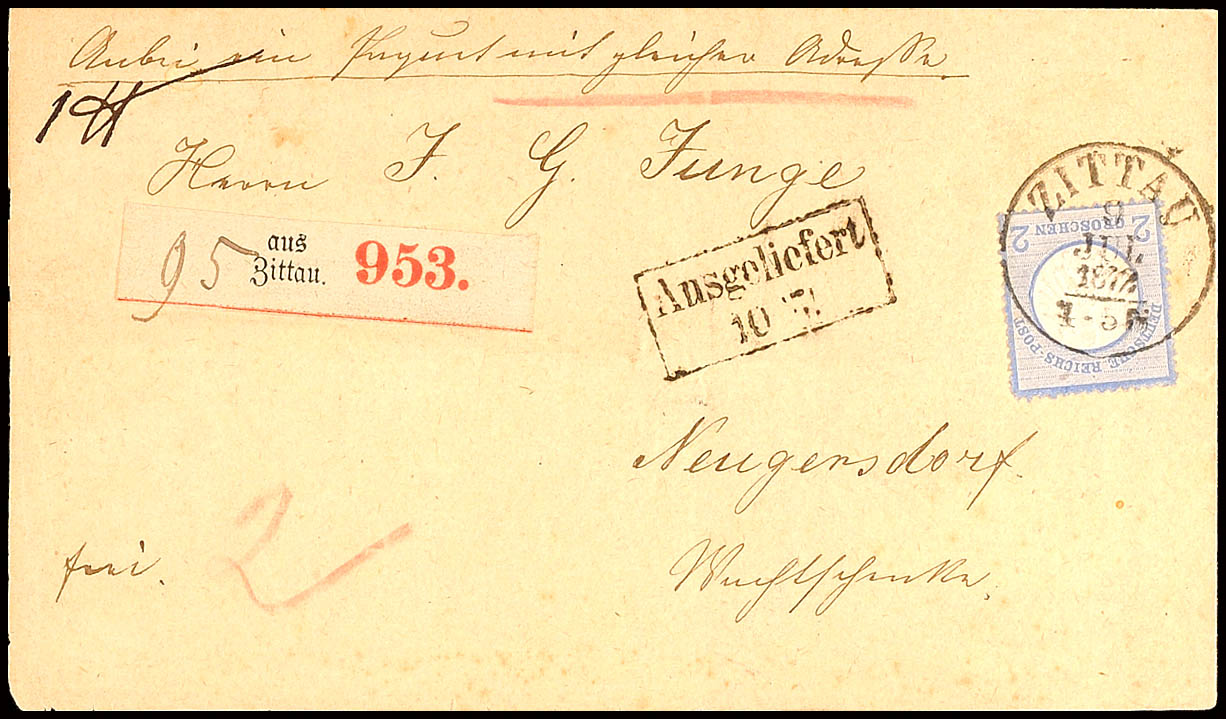 Anbei ein Paquet mit gleicher Adresse.
Herrn J. G. Junge
95 aus Zittau. 953.
Ausgeliefert
10 7.
ZITTAU
9
JUL
1872
2 GROSCHEN 2
DEUTSCHE REICHS-POST
Neugersdorf.
frei. 2
Wachtschenke.